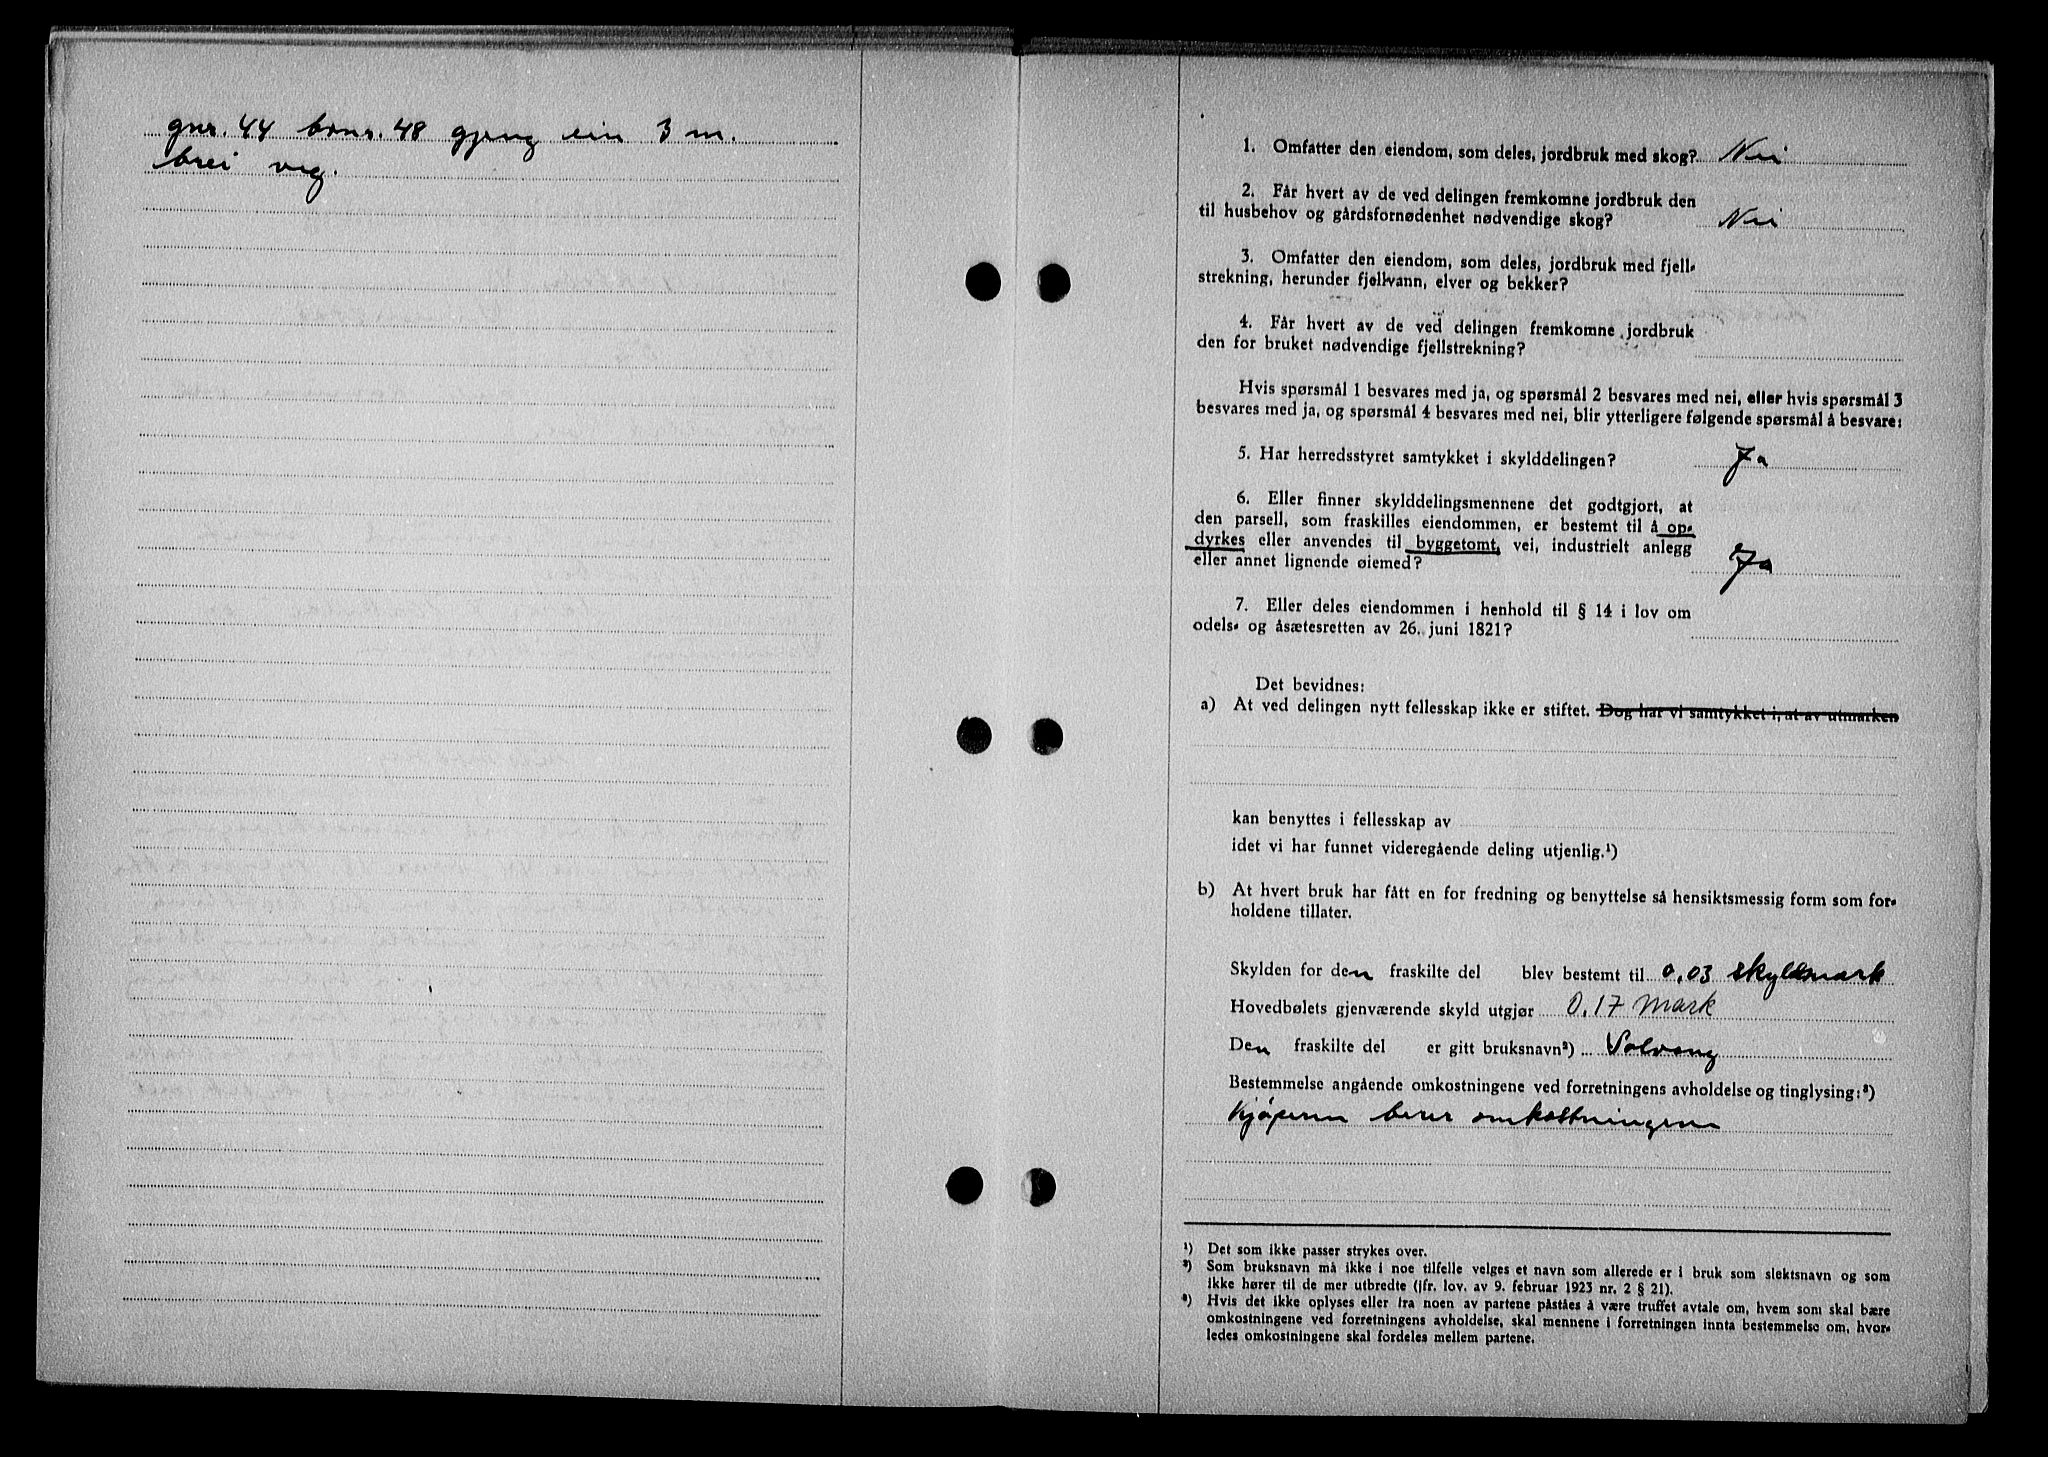 gnr. 44 bnr. 48 gjeng ein 3 m.
brei veg.
1. Omfatter den eiendom, som deles, jordbruk med skog? Nei
2. Får hvert av de ved delingen fremkomne jordbruk den
til husbehov og gårdsfornødenhet nødvendige skog? Nei
3. Omfatter den eiendom, som deles, jordbruk med fjell-
strekning, herunder fjellvann, elver og bekker?
4. Får hvert av de ved delingen fremkomne jordbruk
den for bruket nødvendige fjellstrekning?
Hvis spørsmål 1 besvares med ja, og spørsmål 2 besvares med nei, eller hvis spørsmål 3
besvares med ja, og spørsmål 4 besvares med nei, blir ytterligere følgende spørsmål å besvare:
5. Har herredsstyret samtykket i skylddelingen? Ja
6. Eller finner skylddelingsmennene det godtgjort, at
den parsell, som fraskilles eiendommen, er bestemt til å op-
dyrkes eller anvendes til byggetomt, vei, industrielt anlegg
eller annet lignende øiemed? Ja
7. Eller deles eiendommen i henhold til § 14 i lov om
odels- og åsætesretten av 26. juni 1821?
Det bevidnes:
a) At ved delingen nytt fellesskap ikke er stiftet. Dog har vi samtykket i, at av utmarken
kan benyttes i fellesskap av
idet vi har funnet videregående deling utjenlig.¹)
b) At hvert bruk har fått en for fredning og benyttelse så hensiktsmessig form som for-
holdene tillater.
Skylden for den fraskilte del blev bestemt til 0,03 skyldmark
Hovedbølets gjenværende skyld utgjør 0,17 mark
Den fraskilte del er gitt bruksnavn²) Solvang
Bestemmelse angående omkostningene ved forretningens avholdelse og tinglysing:³)
Kjøperen berer omkostningene
¹) Det som ikke passer strykes over.
²) Som bruksnavn må ikke i noe tilfelle velges et navn som allerede er i bruk som slektsnavn og som
ikke hører til de mer utbredte (jfr. lov. av 9. februar 1923 nr. 2 § 21).
³) Hvis det ikke oplyses eller fra noen av partene påstås å være truffet avtale om, hvem som skal bære
omkostningene ved forretningens avholdelse, skal mennene i forretningen innta bestemmelse om, hvor-
ledes omkostningene skal fordeles mellem partene.